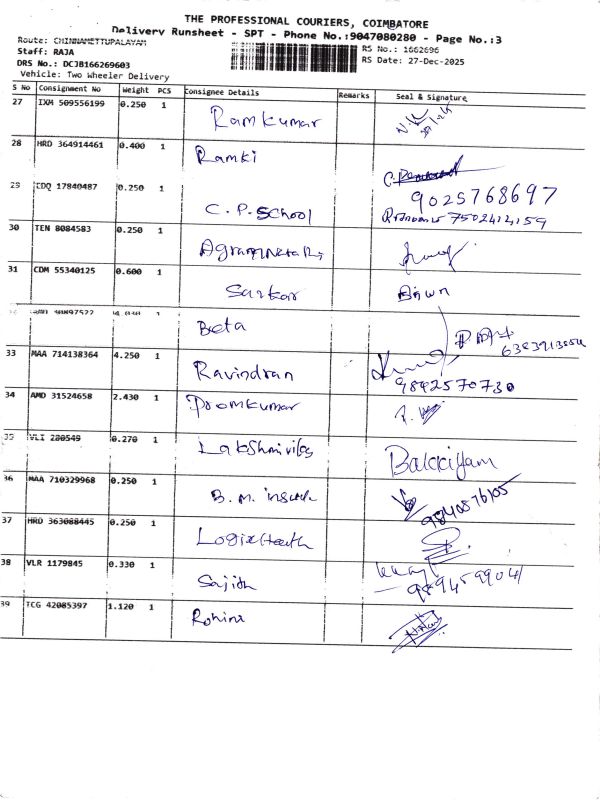 THE PROFESSIONAL COURIERS, COIMBATORE
Delivery Runsheet - SPT - Phone No.:9047080280 - Page No.:3
Route: CHINNAMETTUPALAYAM
RS No.: 1662696
Staff: RAJA
RS Date: 27-Dec-2025
DRS No.: DCJB166269603
Vehicle: Two Wheeler Delivery
S No Consignment No Weight PCS Consignee Details Remarks Seal & Signature
27 IXM 509556199 0.250 1 Ramkumar
28 HRD 364914461 0.400 1 Ramki
29 CDQ 17840487 0.250 1 C.P. School 9025768697
7502412159
30 TEN 8084583 0.250 1
31 CDM 55340125 0.600 1 Sarkar
1 Beta
33 MAA 714138364 4.250 1 Ravindran 9842570730
34 AMD 31524658 2.430 1 Promkumar
35 VLI 280549 0.270 1 Lakshmivilas Bakkiyam
36 MAA 710329968 0.250 1 B.M.
37 HRD 363088445 0.250 1
38 VLR 1179845 0.330 1 Sajith 9894599041
39 TCG 42085397 1.120 1 Rohini